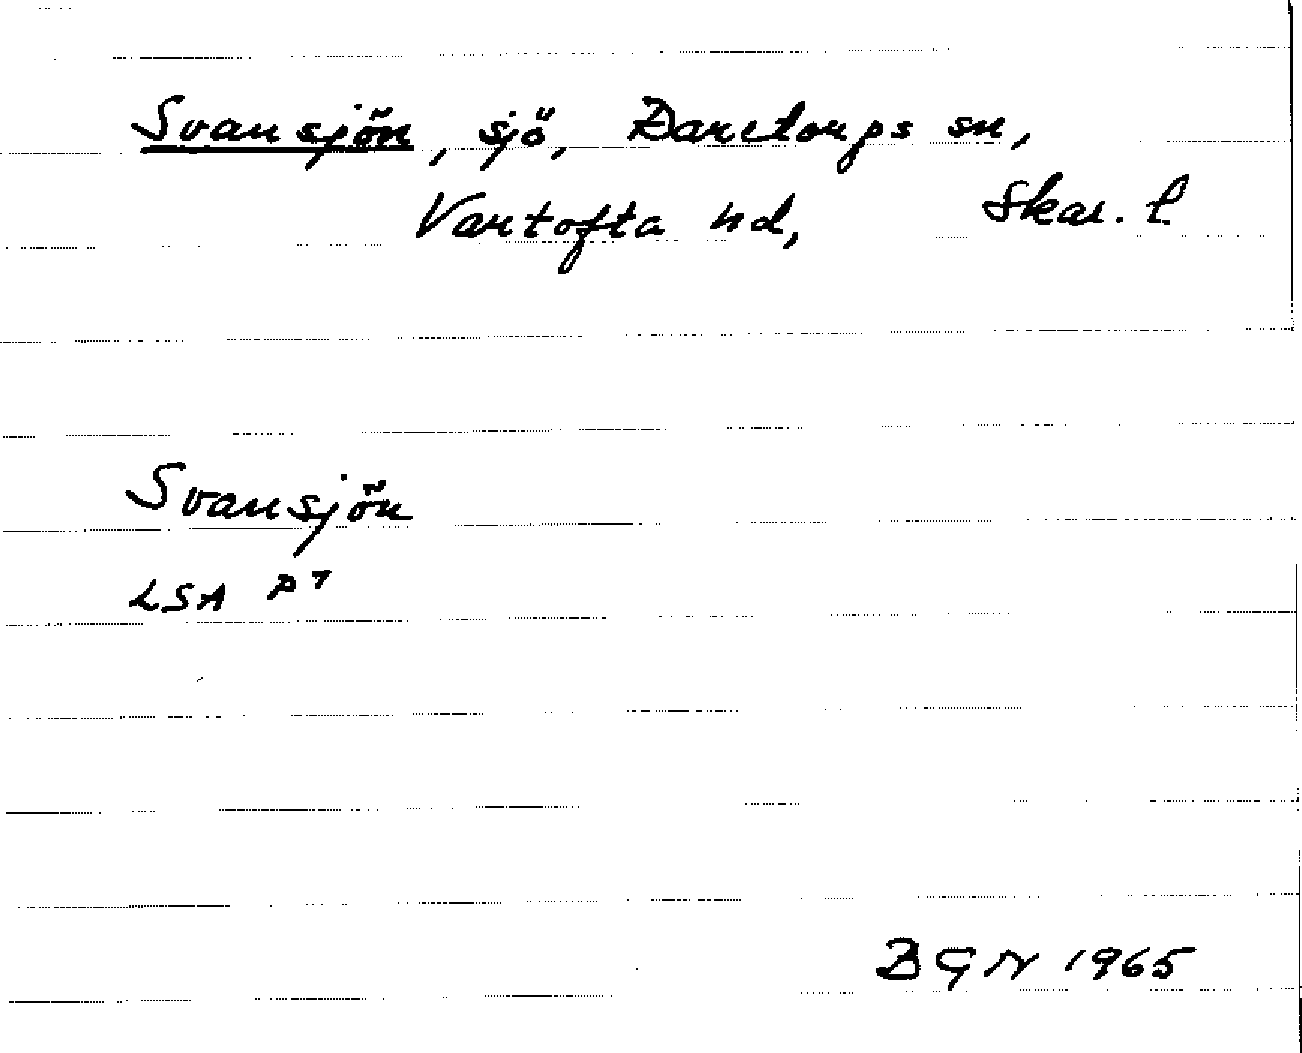 Svansjön, sjö, Daretorps sn,
Vartofta hd, Skar. l.
Svansjön
LSA P7
BGN 1965